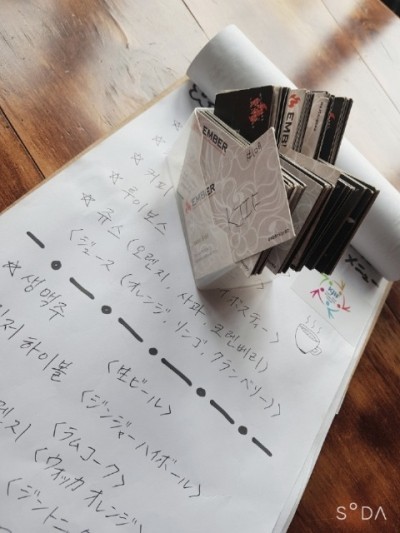 EMBER
EMBER
EMBER
メニュー
☆ 커피
☆ 루이보스
ボスティー〉
☆ 쥬스 (오렌지, 사과, 크랜베리)
〈ジュース (オレンジ, リンゴ, クランベリー)〉
☆ 생맥주
〈生ビール〉
저 하이볼
〈ジンジャーハイボール〉
〈ラムコーク〉
〈ウォッカ オレンジ〉
〈ジントニ
SODA